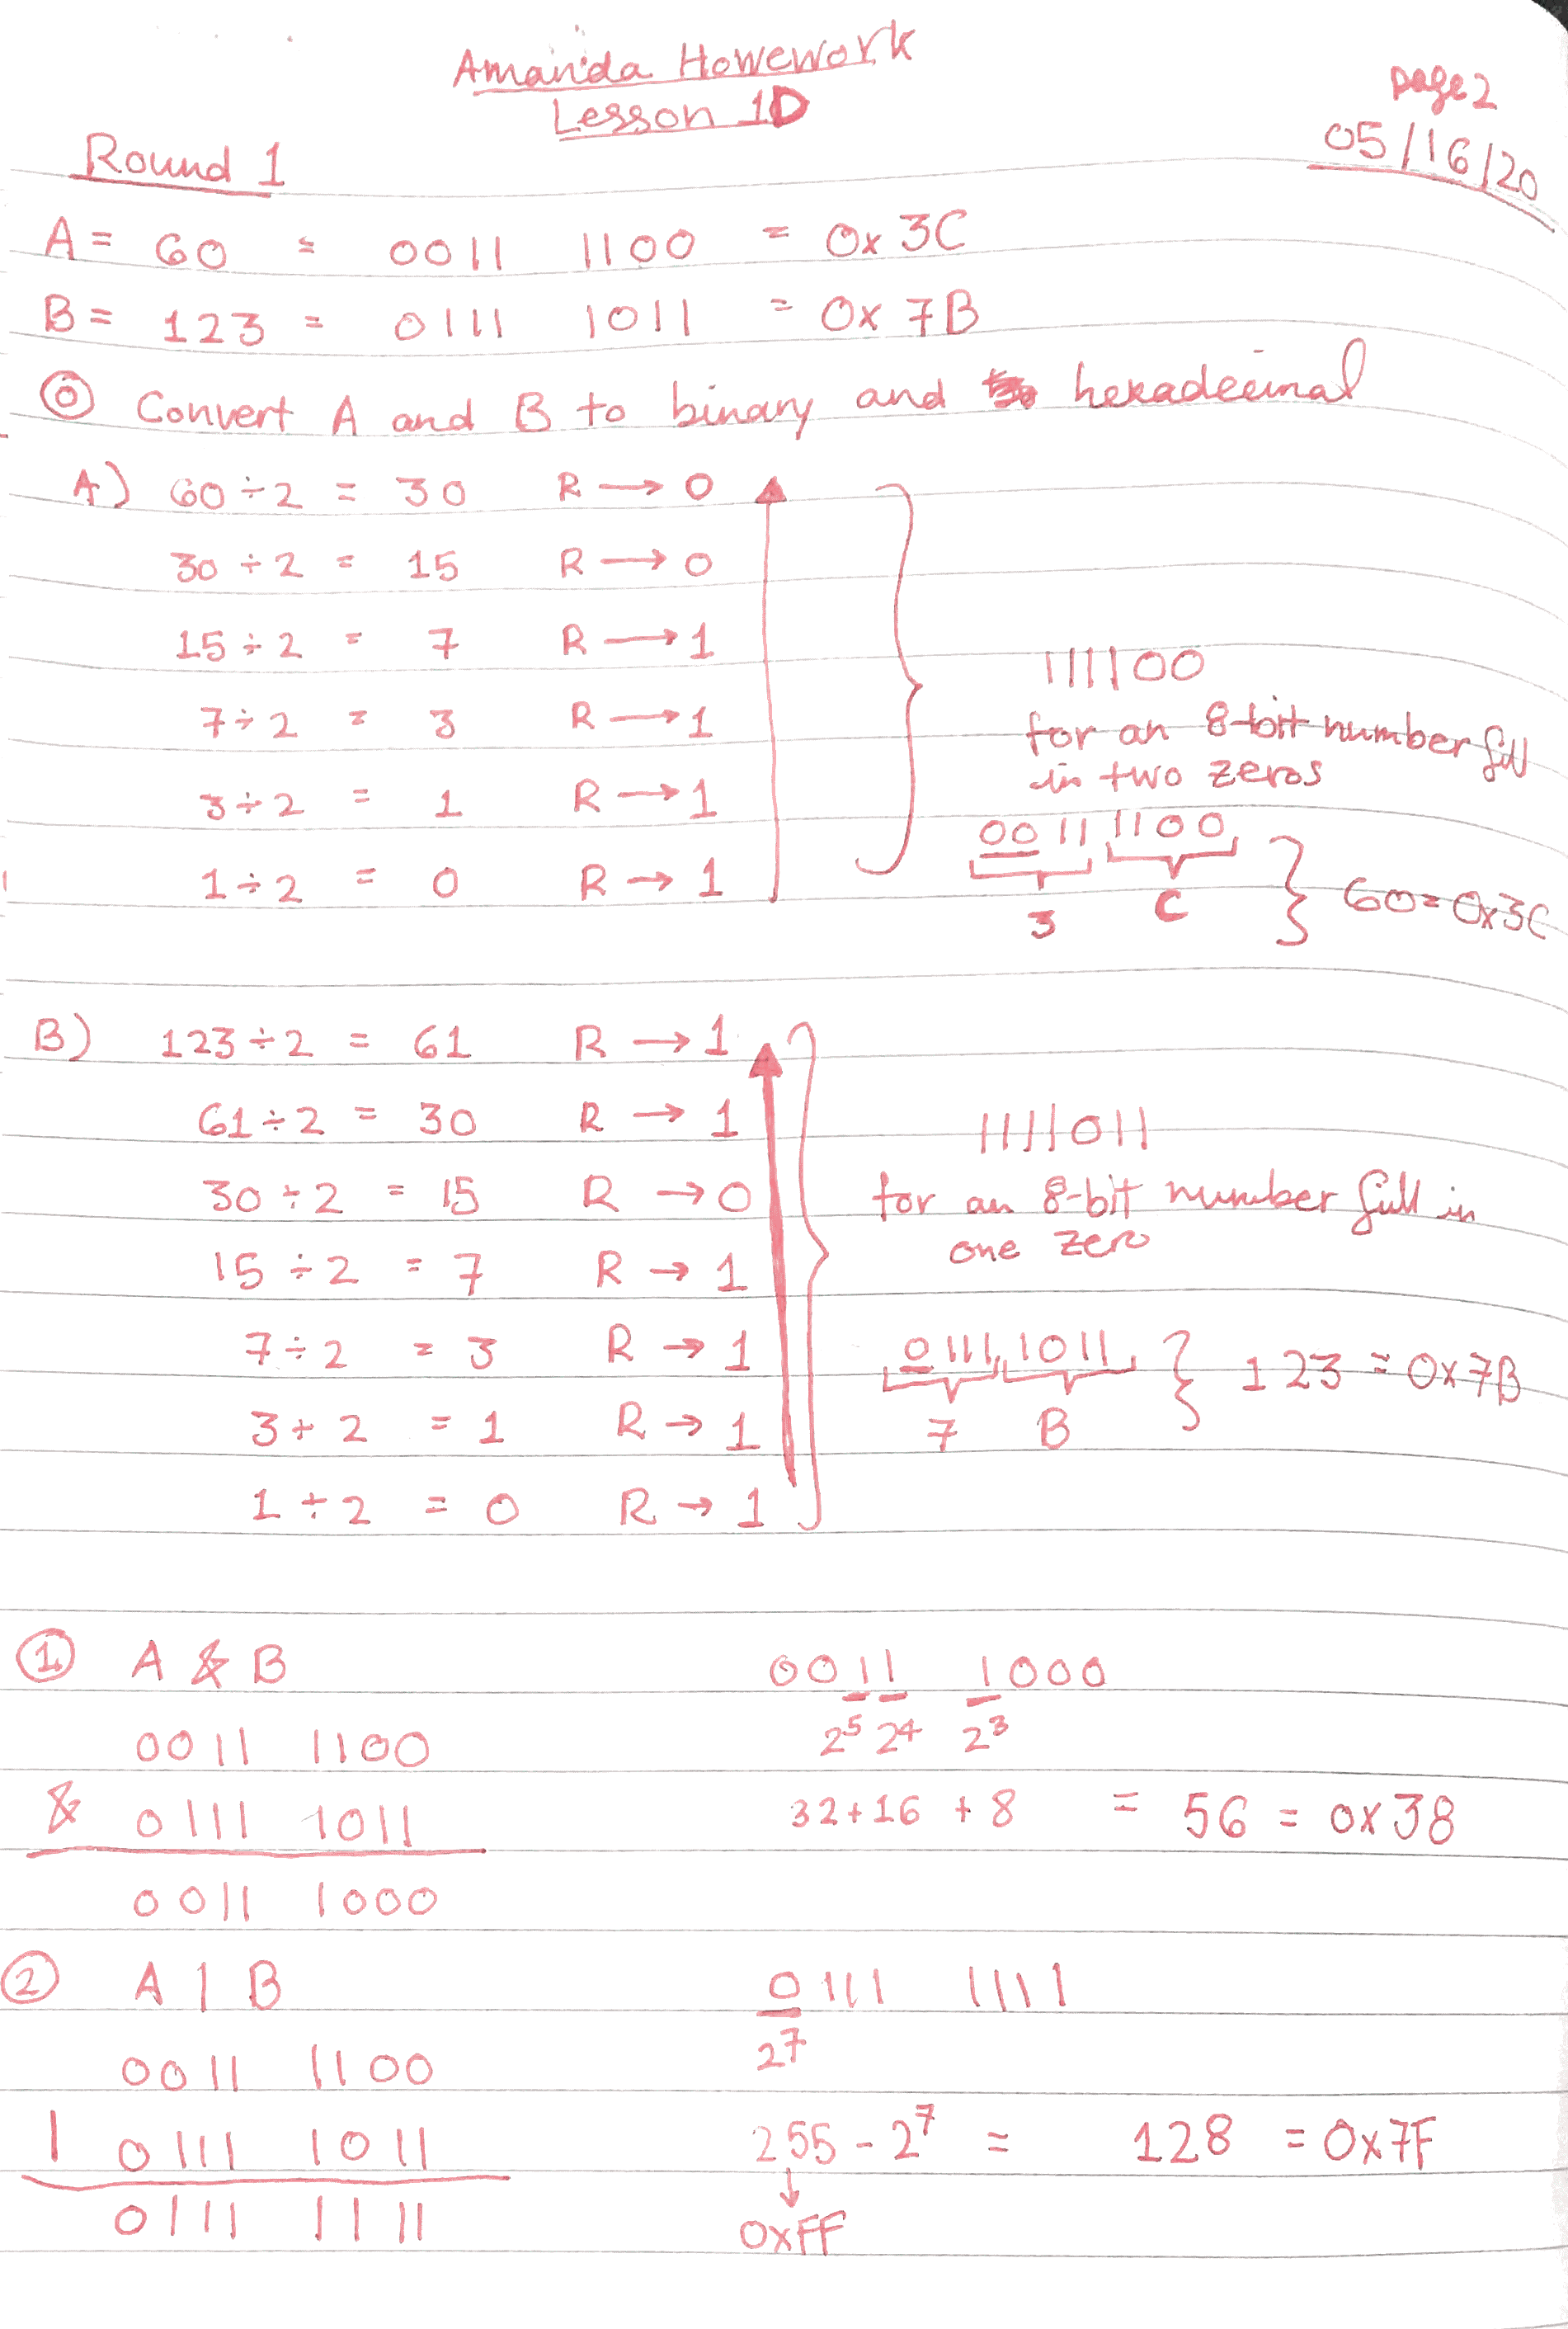 Amanda Howework
Lesson 1D
page 2
05/16/20
Round 1
A = 60 = 0011 1100 = 0x 3C
B = 123 = 0111 1011 = 0x 7B
⓪ Convert A and B to binary and hexadecimal
A) 60 ÷ 2 = 30 R → 0
30 ÷ 2 = 15 R → 0
15 ÷ 2 = 7 R → 1
7 ÷ 2 = 3 R → 1
3 ÷ 2 = 1 R → 1
1 ÷ 2 = 0 R → 1
111100
for an 8-bit number fill
in two zeros
0011 1100
3 C
60 = 0x3C
B) 123 ÷ 2 = 61 R → 1
61 ÷ 2 = 30 R → 1
30 ÷ 2 = 15 R → 0
15 ÷ 2 = 7 R → 1
7 ÷ 2 = 3 R → 1
3 ÷ 2 = 1 R → 1
1 ÷ 2 = 0 R → 1
1111011
for an 8-bit number fill in
one zero
0111 1011
7 B
123 = 0x7B
① A & B
0011 1100
& 0111 1011
0011 1000
0011 1000
2⁵ 2⁴ 2³
32+16 + 8 = 56 = 0x38
② A | B
0011 1100
| 0111 1011
0111 1111
0111 1111
2⁷
255 - 2⁷ = 128 = 0x7F
↓
0xFF